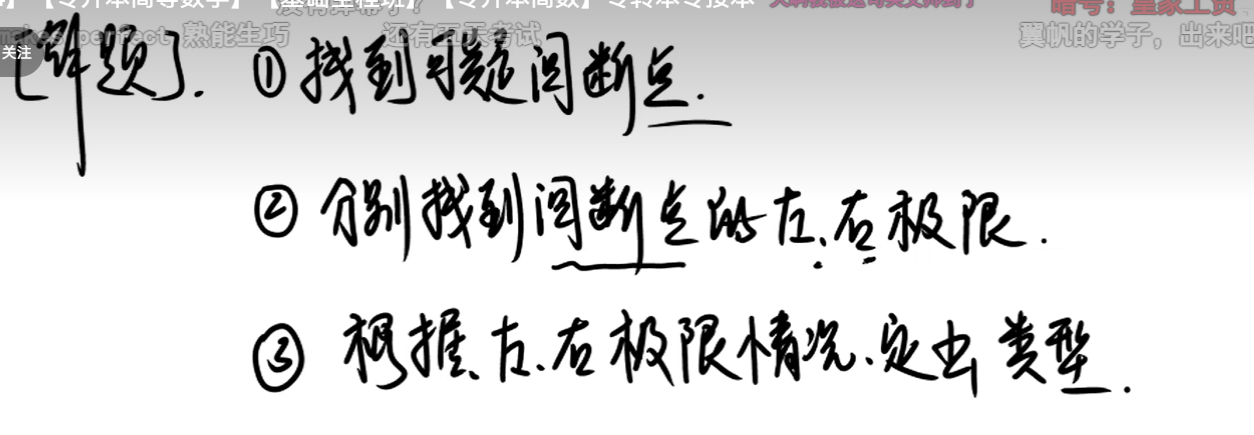 【专升本高等数学】【基础全程班】【专升本高数】专转本专接本
暗号：皇家工贸
makes perfect 熟能生巧
还有五天考试
翼帆的学子，出来吧
关注
[解题]. ① 找到可疑间断点.
② 分别找到间断点的左、右极限.
③ 根据、左、右极限情况、定出类型.